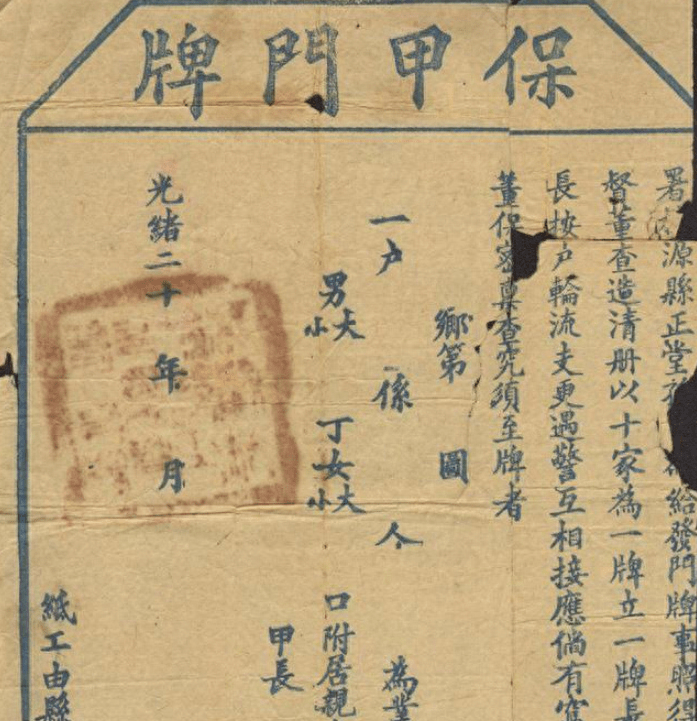 保甲門牌
署 源縣正堂 給發門牌事照得
督董查造清册以十家為一牌立一牌長
長按户輪流支更遇警互相接應倘有
董保密稟查究須至牌者
鄉第 圖
一户 係 人 為業
男大小 丁女大小 口附居親
甲長
光緒二十 年 月
紙工由縣